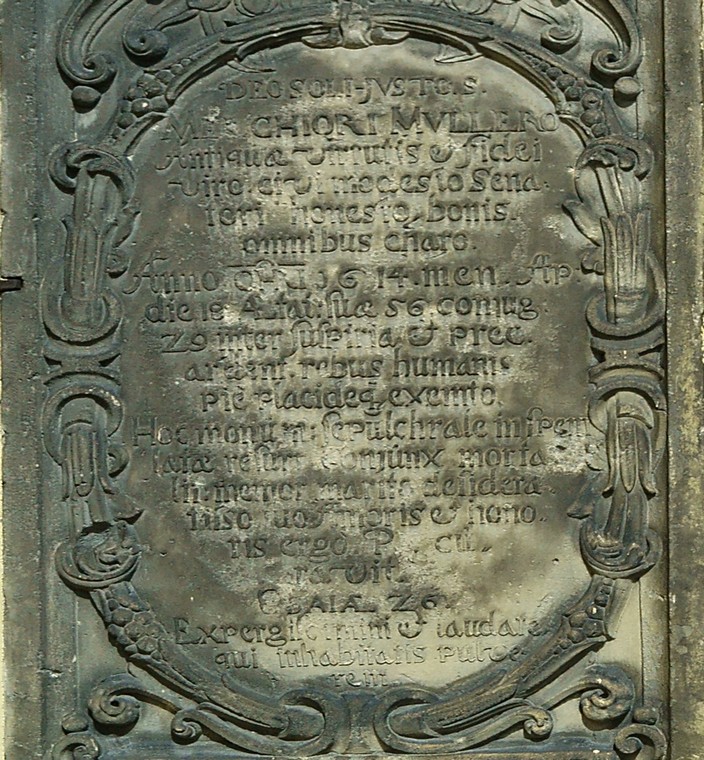 DEO SOLI JUSTO S.
MELCHIORI MVLLERO
Antiquæ virtutis & fidei
viro, civi modesto Sena-
tori honesto, bonis
omnibus charo.
Anno 1614. men. Ap.
die 19 Ætat: suæ 56 conjug.
29 inter suspiria & prec.
ardent. rebus humanis
pie placideq, exemto.
Hoc monum: sepulchrale in spem
lætæ resurr. Conjunx morta-
lit. memor marito desidera-
tiss. suo amoris & hono-
ris ergo P. cu-
ravit.
ESAIÆ 26.
Expergiscimini & laudate
qui inhabitatis pulve-
rem.